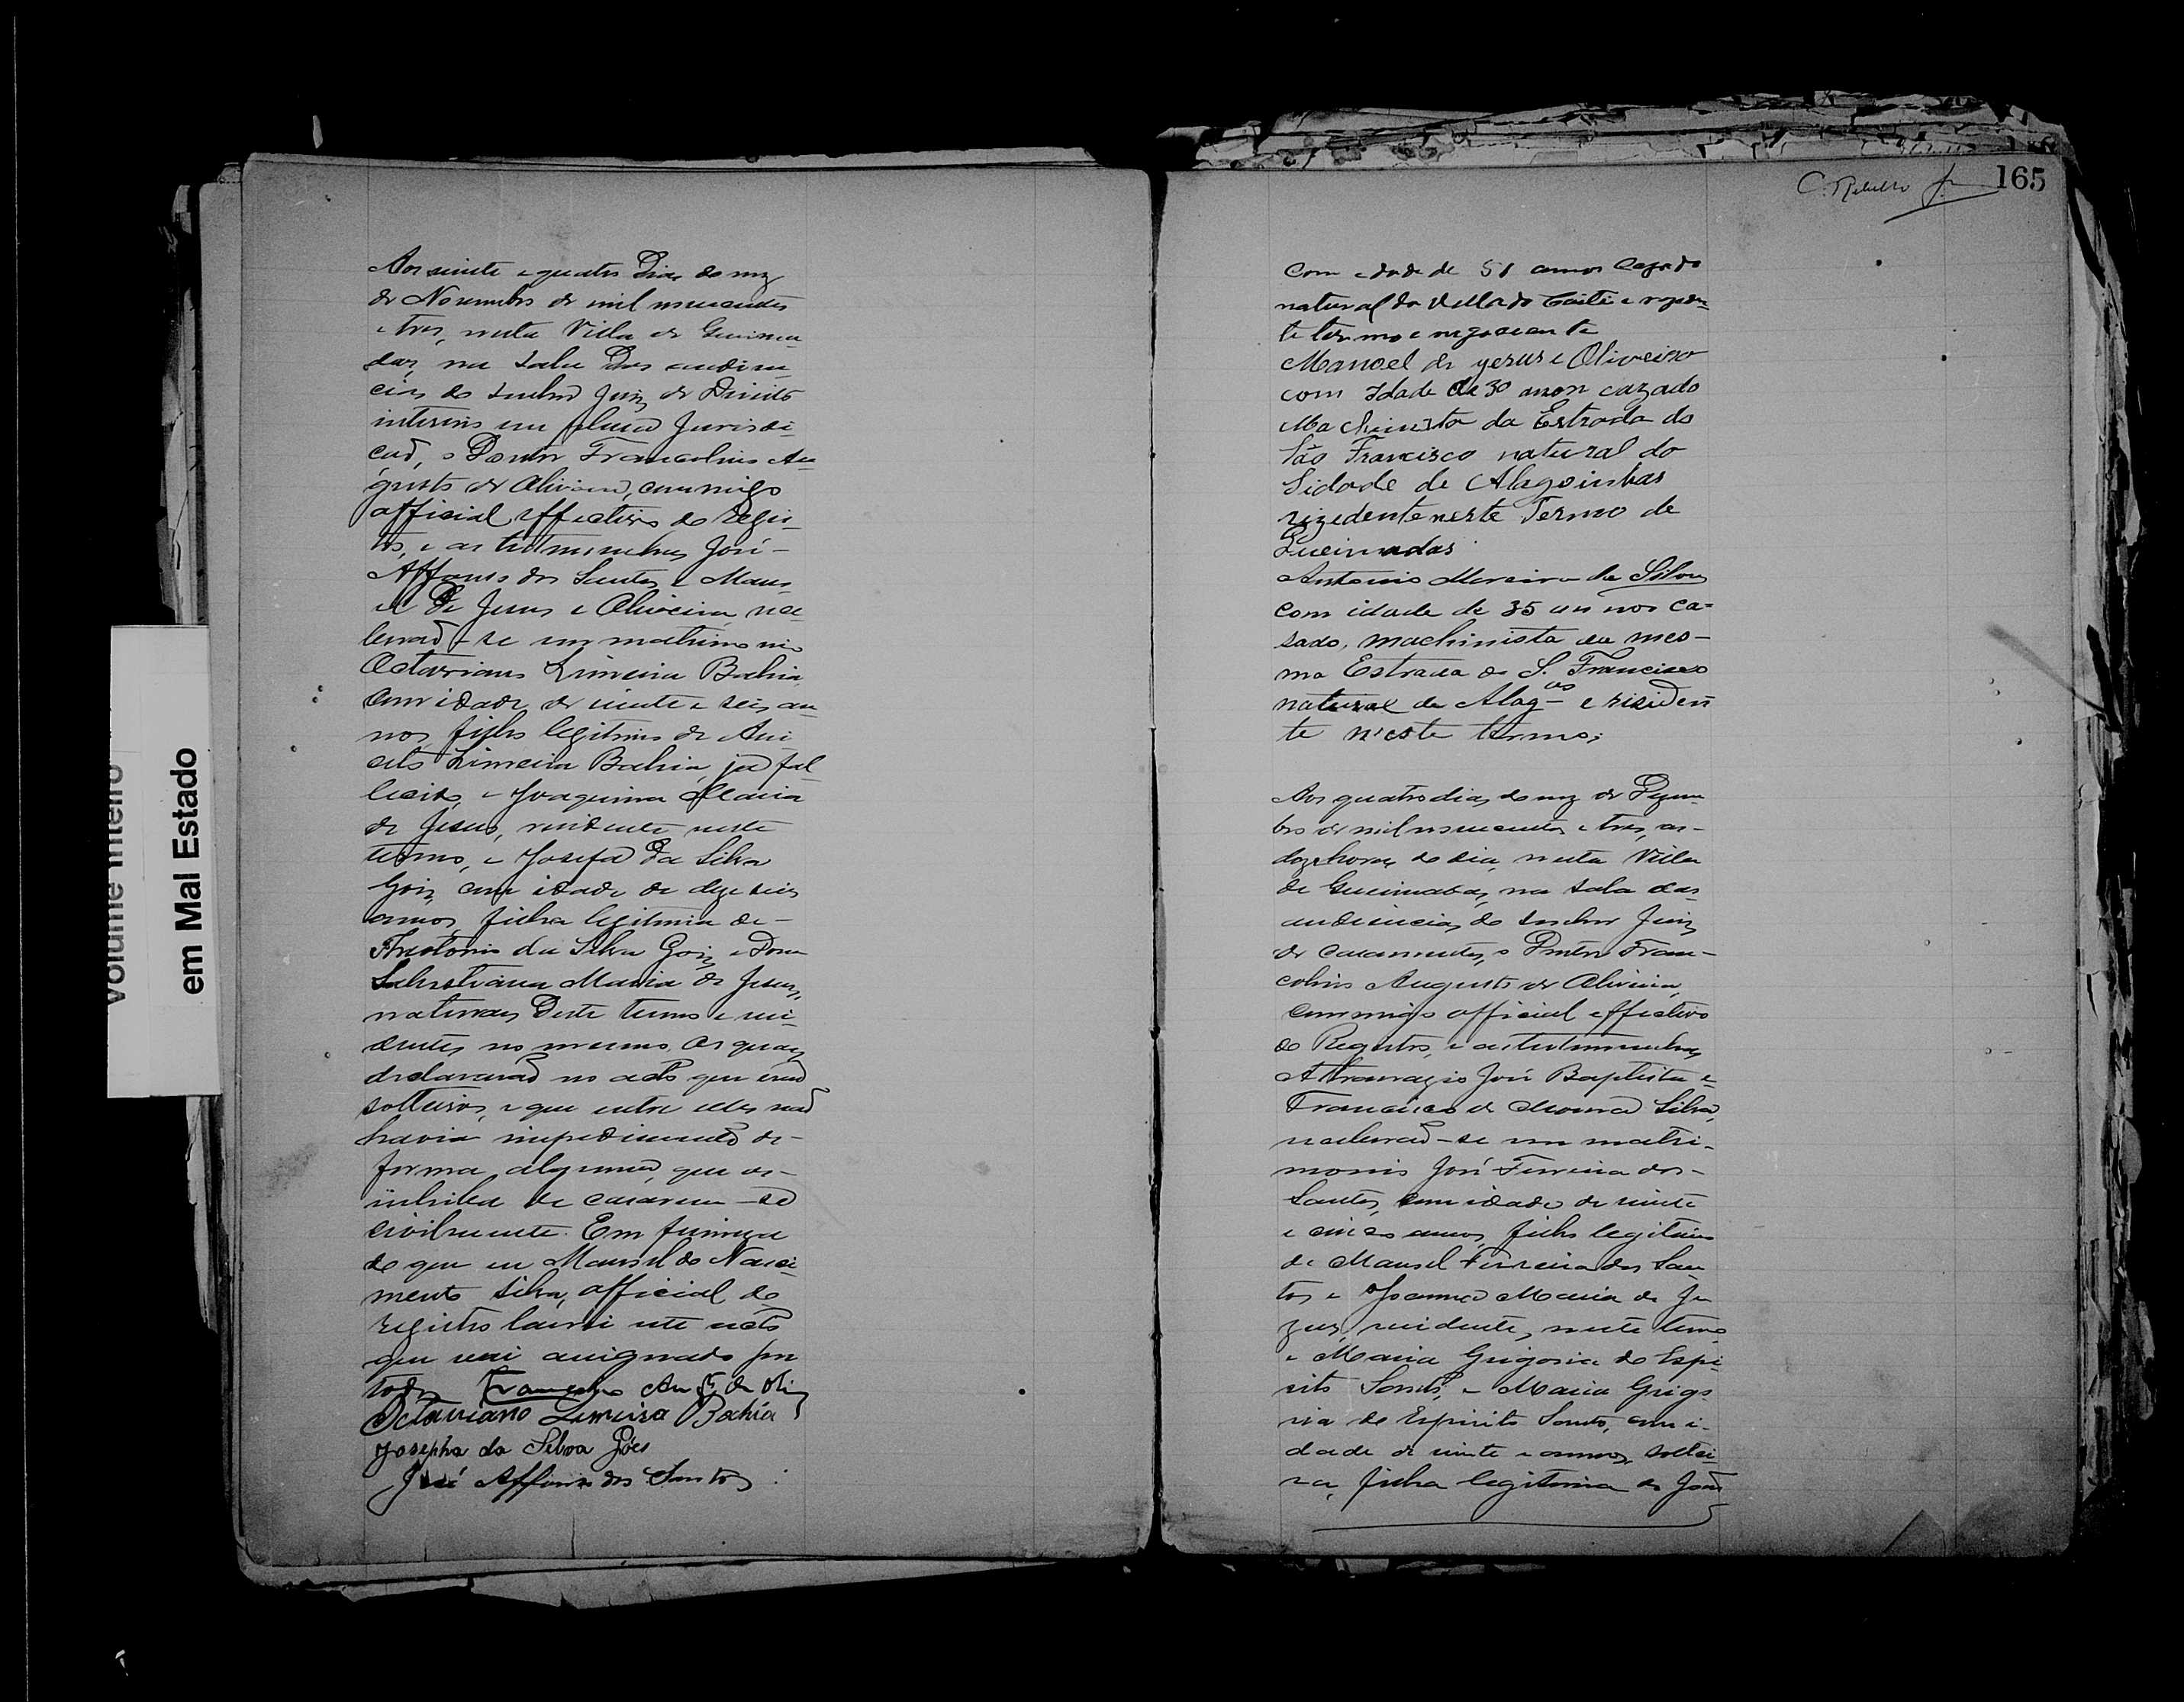 Volume Inteiro
em Mal Estado
Aos vinte e quatro Dias do mez
de Novembro de mil novecentos
e tres, nesta Villa de Queima-
das, na sala Das audien-
cias do senhor Juiz de Direito
interino em plena Jurisdi-
cad, o Doutor Francolino Au-
gusto de Oliveira, commigo
official effectivo do regis-
tro, e as testemunhas José-
Affonso dos Santos e Mano-
el De Jesus e Oliveira, rece-
berad-se em matrimonio
Octaviano Limeira Bahia,
com idade de vinte e seis an-
nos, filho legitimo de Ani-
ceto Limeira Bahia, já fal-
lecido, e Joaquina Maria
de Jesus, residente neste
termo, e Josefa Da Silva
Goiz, com idade de dezeseis
annos, filha legitima de-
Antonio da Silva Goiz, e Dona
Sebastiana Maria de Jesus,
naturaes Deste termo e resi-
dentes no mesmo. Os quaes
declararad no acto que erad
solteiros, e que entre elles nad
havia impedimento de-
forma alguma, que os-
inhiba de casarem-se
civilmente. Em firmeza
do que eu Manoel do Nasci-
mento Silva, official do
registro lavrei este acto
que vai assignado por
todos. Au de
Octaviano Limeira Bahia
Josepha da Silva Góes
José Affonso dos Santos
C. Rebello Jr. 165
com edade de 51 annos Cazado
natural da Villa do e rezeden-
te termo e negociante
Manoel de yesus e Oliveira
com Idade de 30 anon cazado
Machinista da Estrada do
São Francisco natural do
Sidade de Alagoinhas
rizedente neste Termo de
Queimadas
Antonio Moreira da Silva
com idade de 35 annos ca-
sado, machinista da mes-
ma Estrada de S. Francisco
natural de Alag-as e residen
te n'este termo;
Aos quatro dias do mez de Dezem-
bro de mil novecentos e tres, as-
doze horas do dia, nesta Villa
de Queimadas, na sala das
audiencias do senhor Juiz
de casamentos, o Doutor Fran-
colino Augusto de Oliveira,
commigo official effectivo
do Registro, e as testemunhas
Athanazio José Baptista e
Francisco de Moura Silva,
receberad-se em matri-
monio José Ferreira dos-
Santos, com idade de vinte
e cinco annos, filho legitimo
de Manoel Ferreira dos San-
tos e Joanna Maria de Je-
zus, residente, neste termo
e Maria Grigoria do Espi-
rito Santo, e Maria Grigo-
ria do Espirito Santo, com i-
dade de vinte e annos, soltei-
ra, filha legitima de João